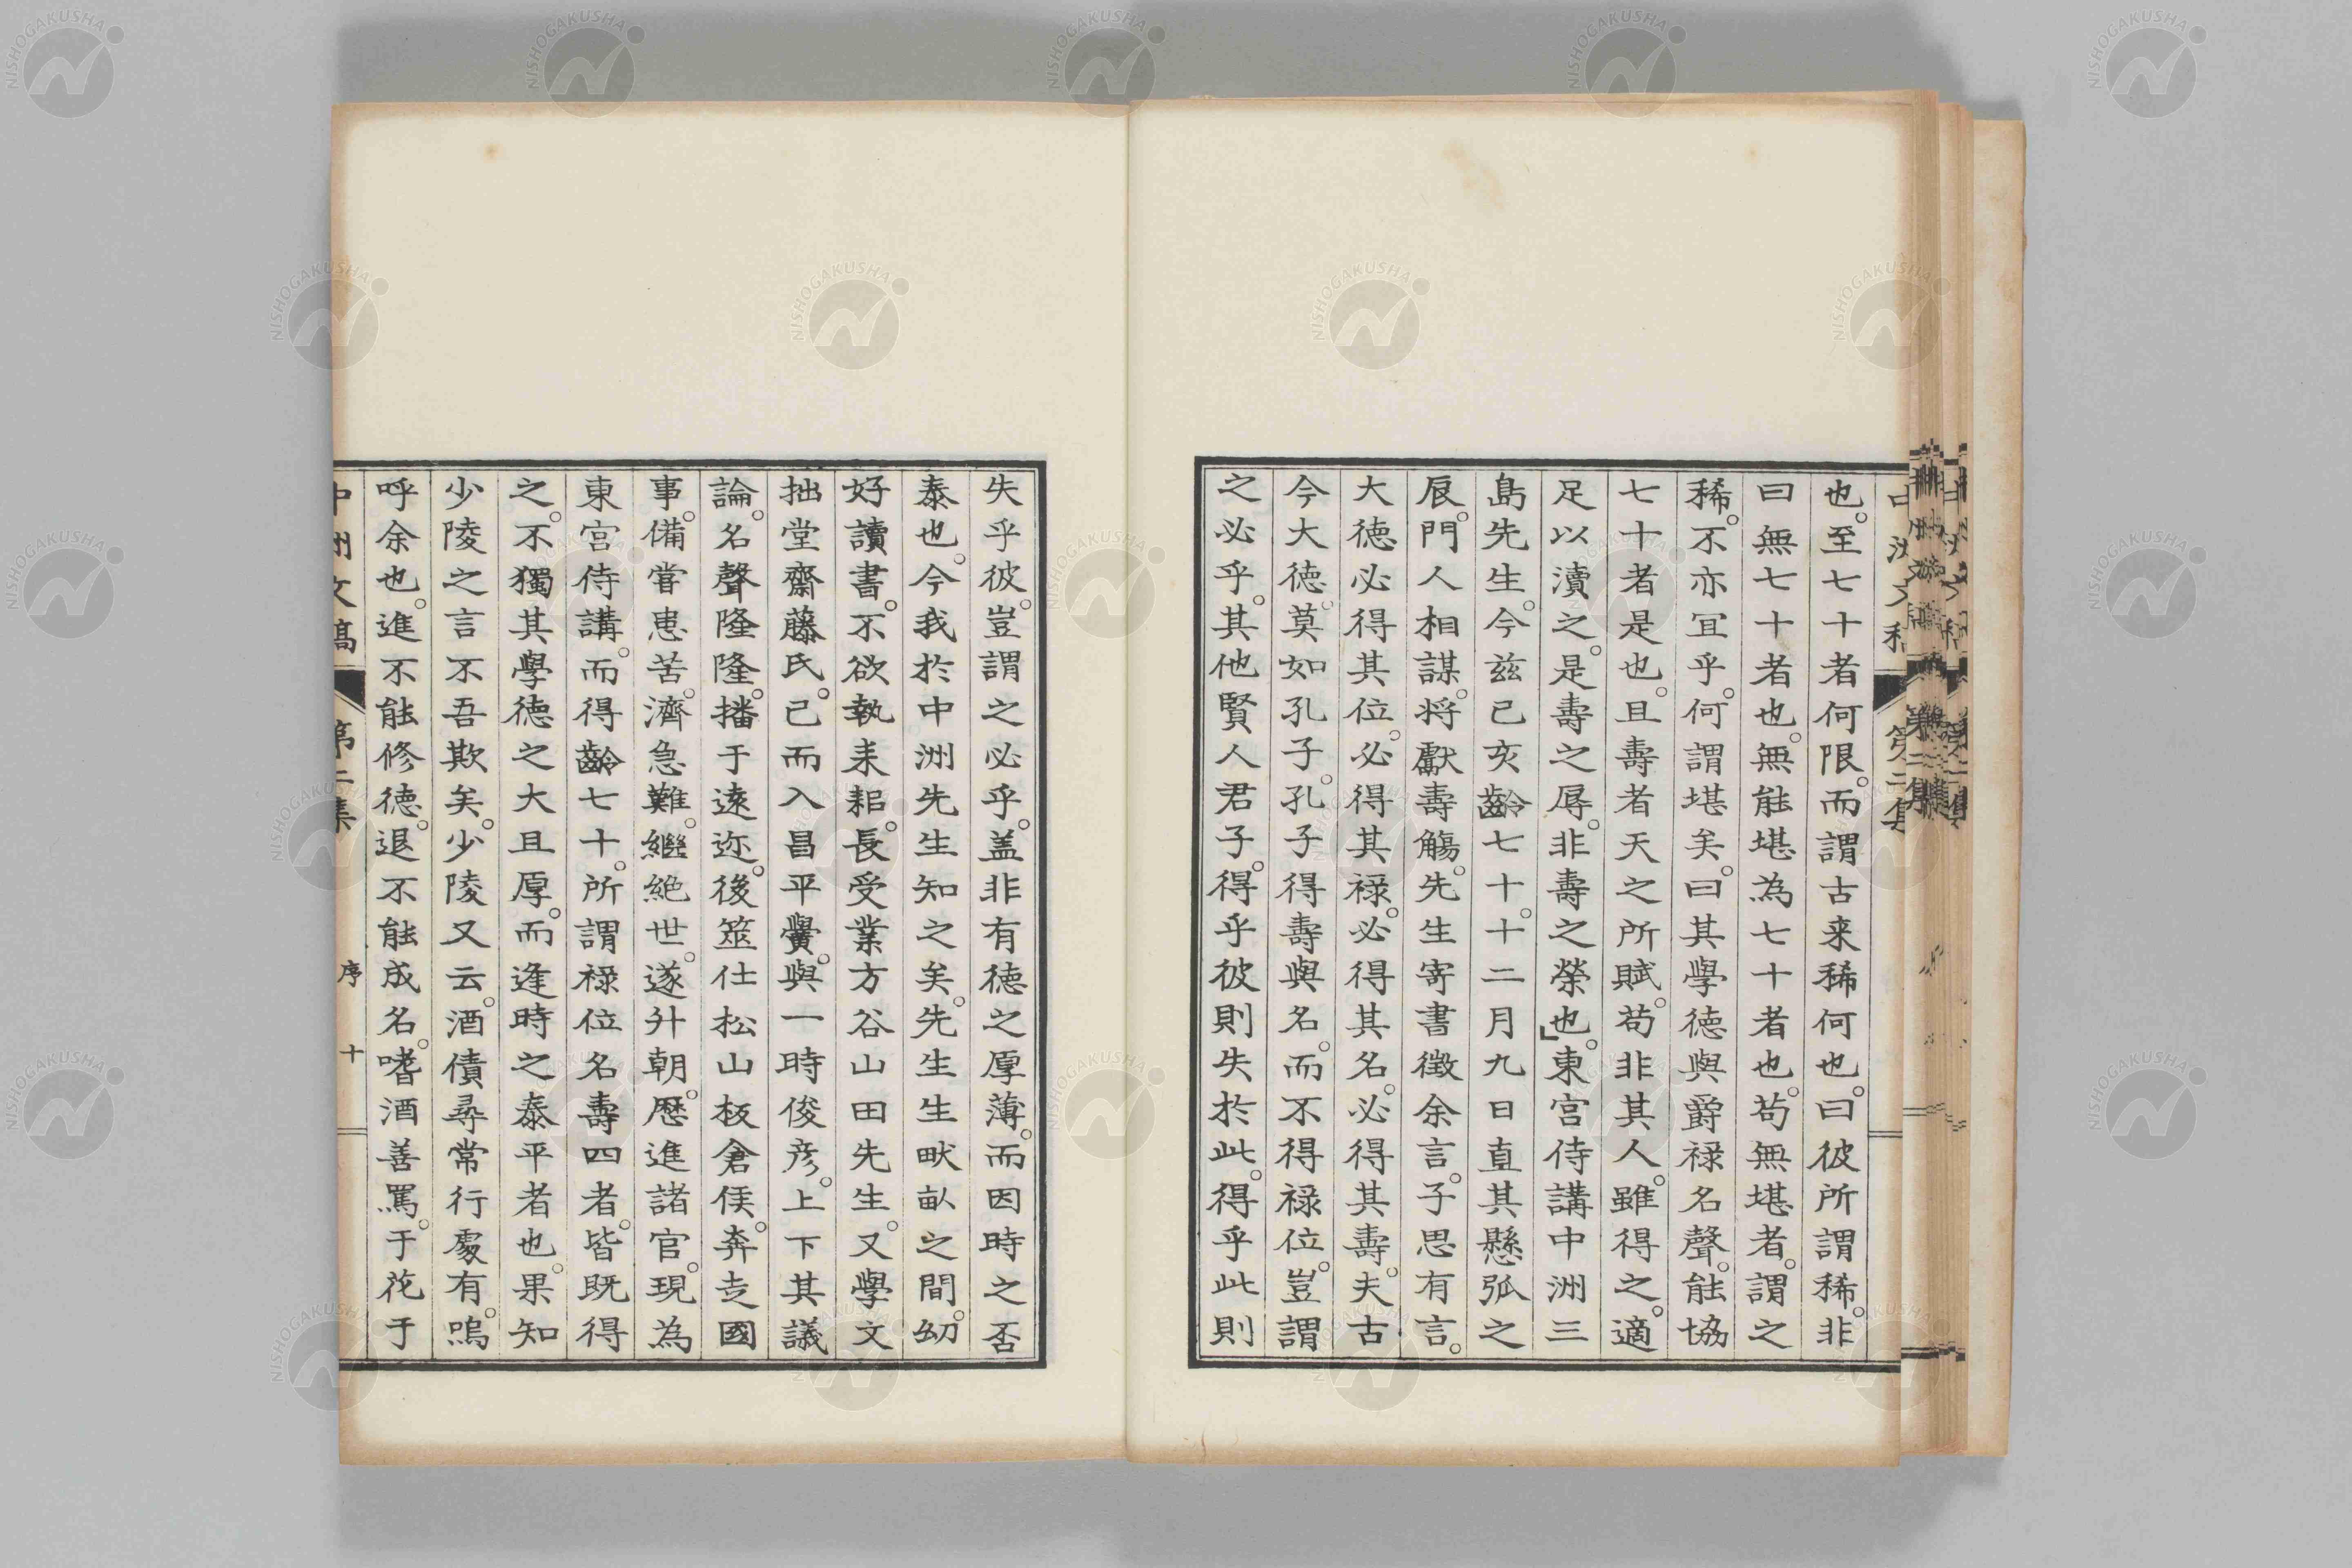 也。至七十者何限。而謂古来稀何也。曰彼所謂稀。非
曰無七十者也。無能堪為七十者也。苟無堪者。謂之
稀。不亦宜乎。何謂堪矣。曰其學徳與爵祿名聲。能協
七十者是也。且壽者天之所賦。苟非其人。雖得之。適
足以瀆之。是壽之辱。非壽之榮也。」東宮侍講中洲三
島先生。今茲己亥齡七十。十二月九日直其懸弧之
辰。門人相謀。将獻壽觴。先生寄書徴余言。子思有言。
大徳必得其位。必得其祿。必得其名。必得其壽。夫古
今大徳。莫如孔子。孔子得壽與名。而不得祿位。豈謂
之必乎。其他賢人君子。得乎彼則失於此。得乎此則
失乎彼。豈謂之必乎。盖非有徳之厚薄。而因時之否
泰也。今我於中洲先生知之矣。先生生畎畝之間。幼
好讀書。不欲執耒耜。長受業方谷山田先生。又學文
拙堂齋藤氏。已而入昌平黌。與一時俊彦。上下其議
論。名聲隆隆。播于遠迩。後筮仕松山板倉侯。奔走國
事。備甞患苦。濟急難。繼絶世。遂升朝。歷進諸官。現為
東宮侍講。而得齡七十。所謂祿位名壽四者。皆既得
之。不獨其學徳之大且厚。而逢時之泰平者也。果知
少陵之言不吾欺矣。少陵又云。酒債尋常行處有。嗚
呼余也。進不能修徳。退不能成名。嗜酒善罵。于花于
中洲文稿 第二集 序 十
NISHOGAKUSHA